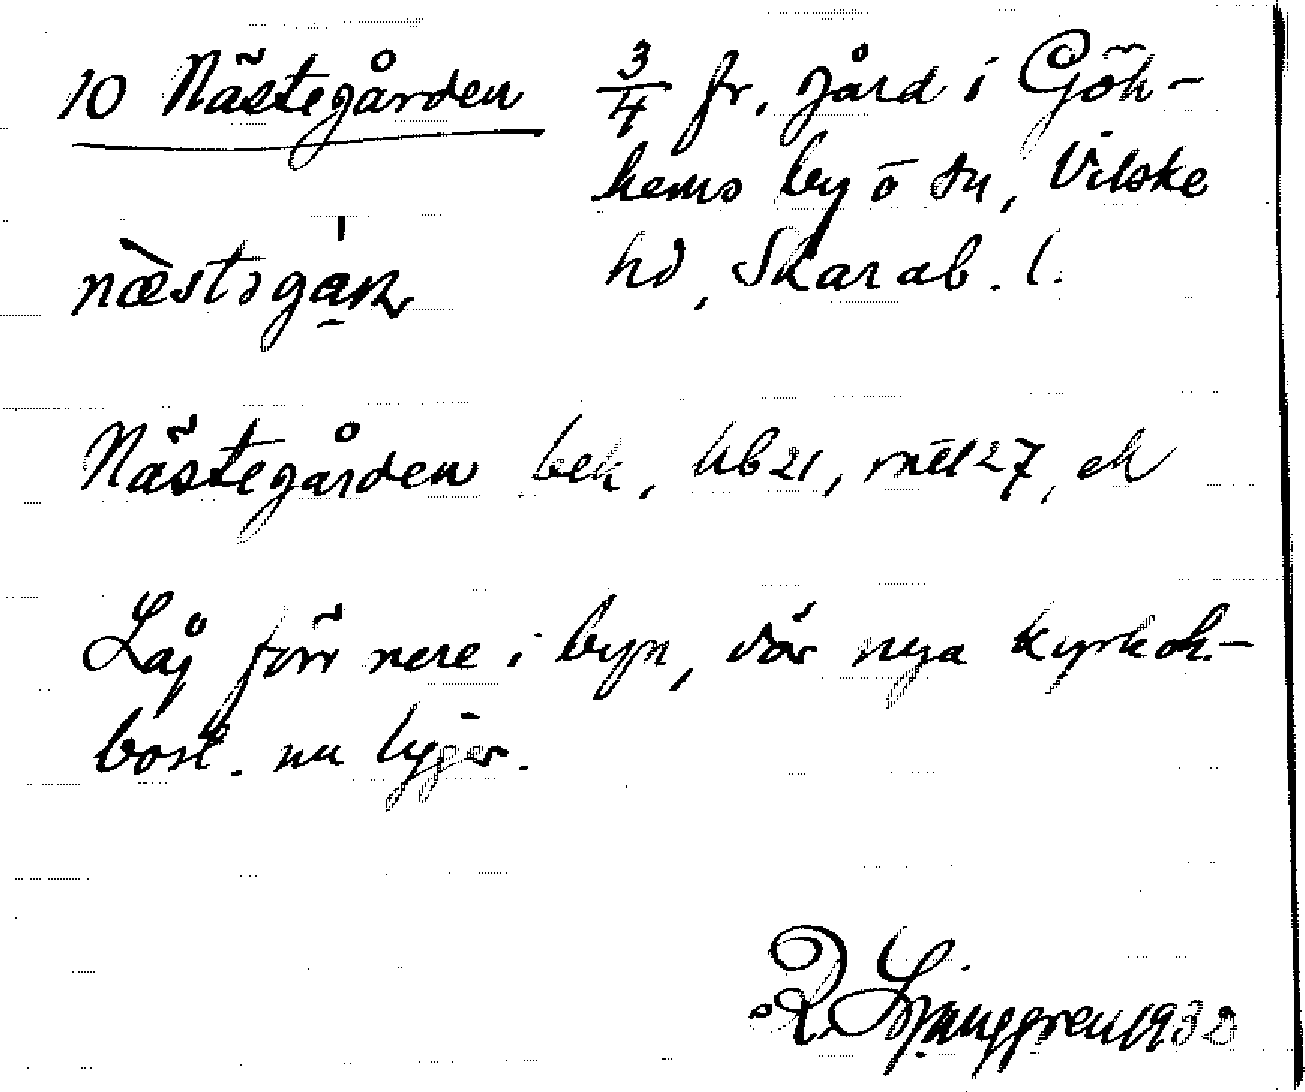 10 Nästegården
3/4 fr. gård i Gök-
hems by o sn, Vilske
hd, Skarab. l.
næstəgaɳ
Nästegården bek, hb 21, mtl 27, ek
Låg förr nere i byn, där nya kyrkoh.-
bost. nu ligger.
R. Ljunggren 1932